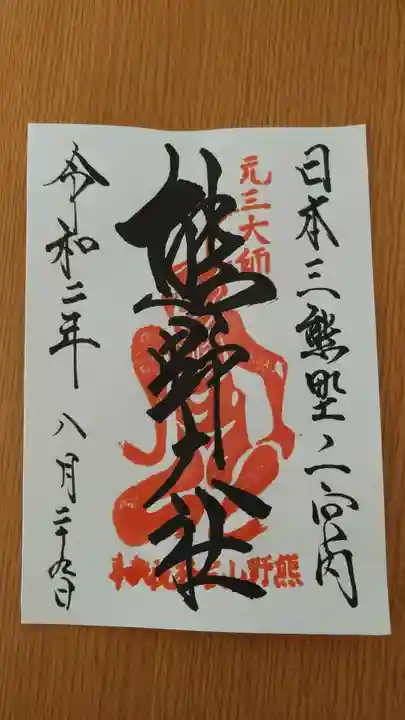 日本三熊野ノ一宮内
元三大師
熊野大社
令和二年 八月二十九日